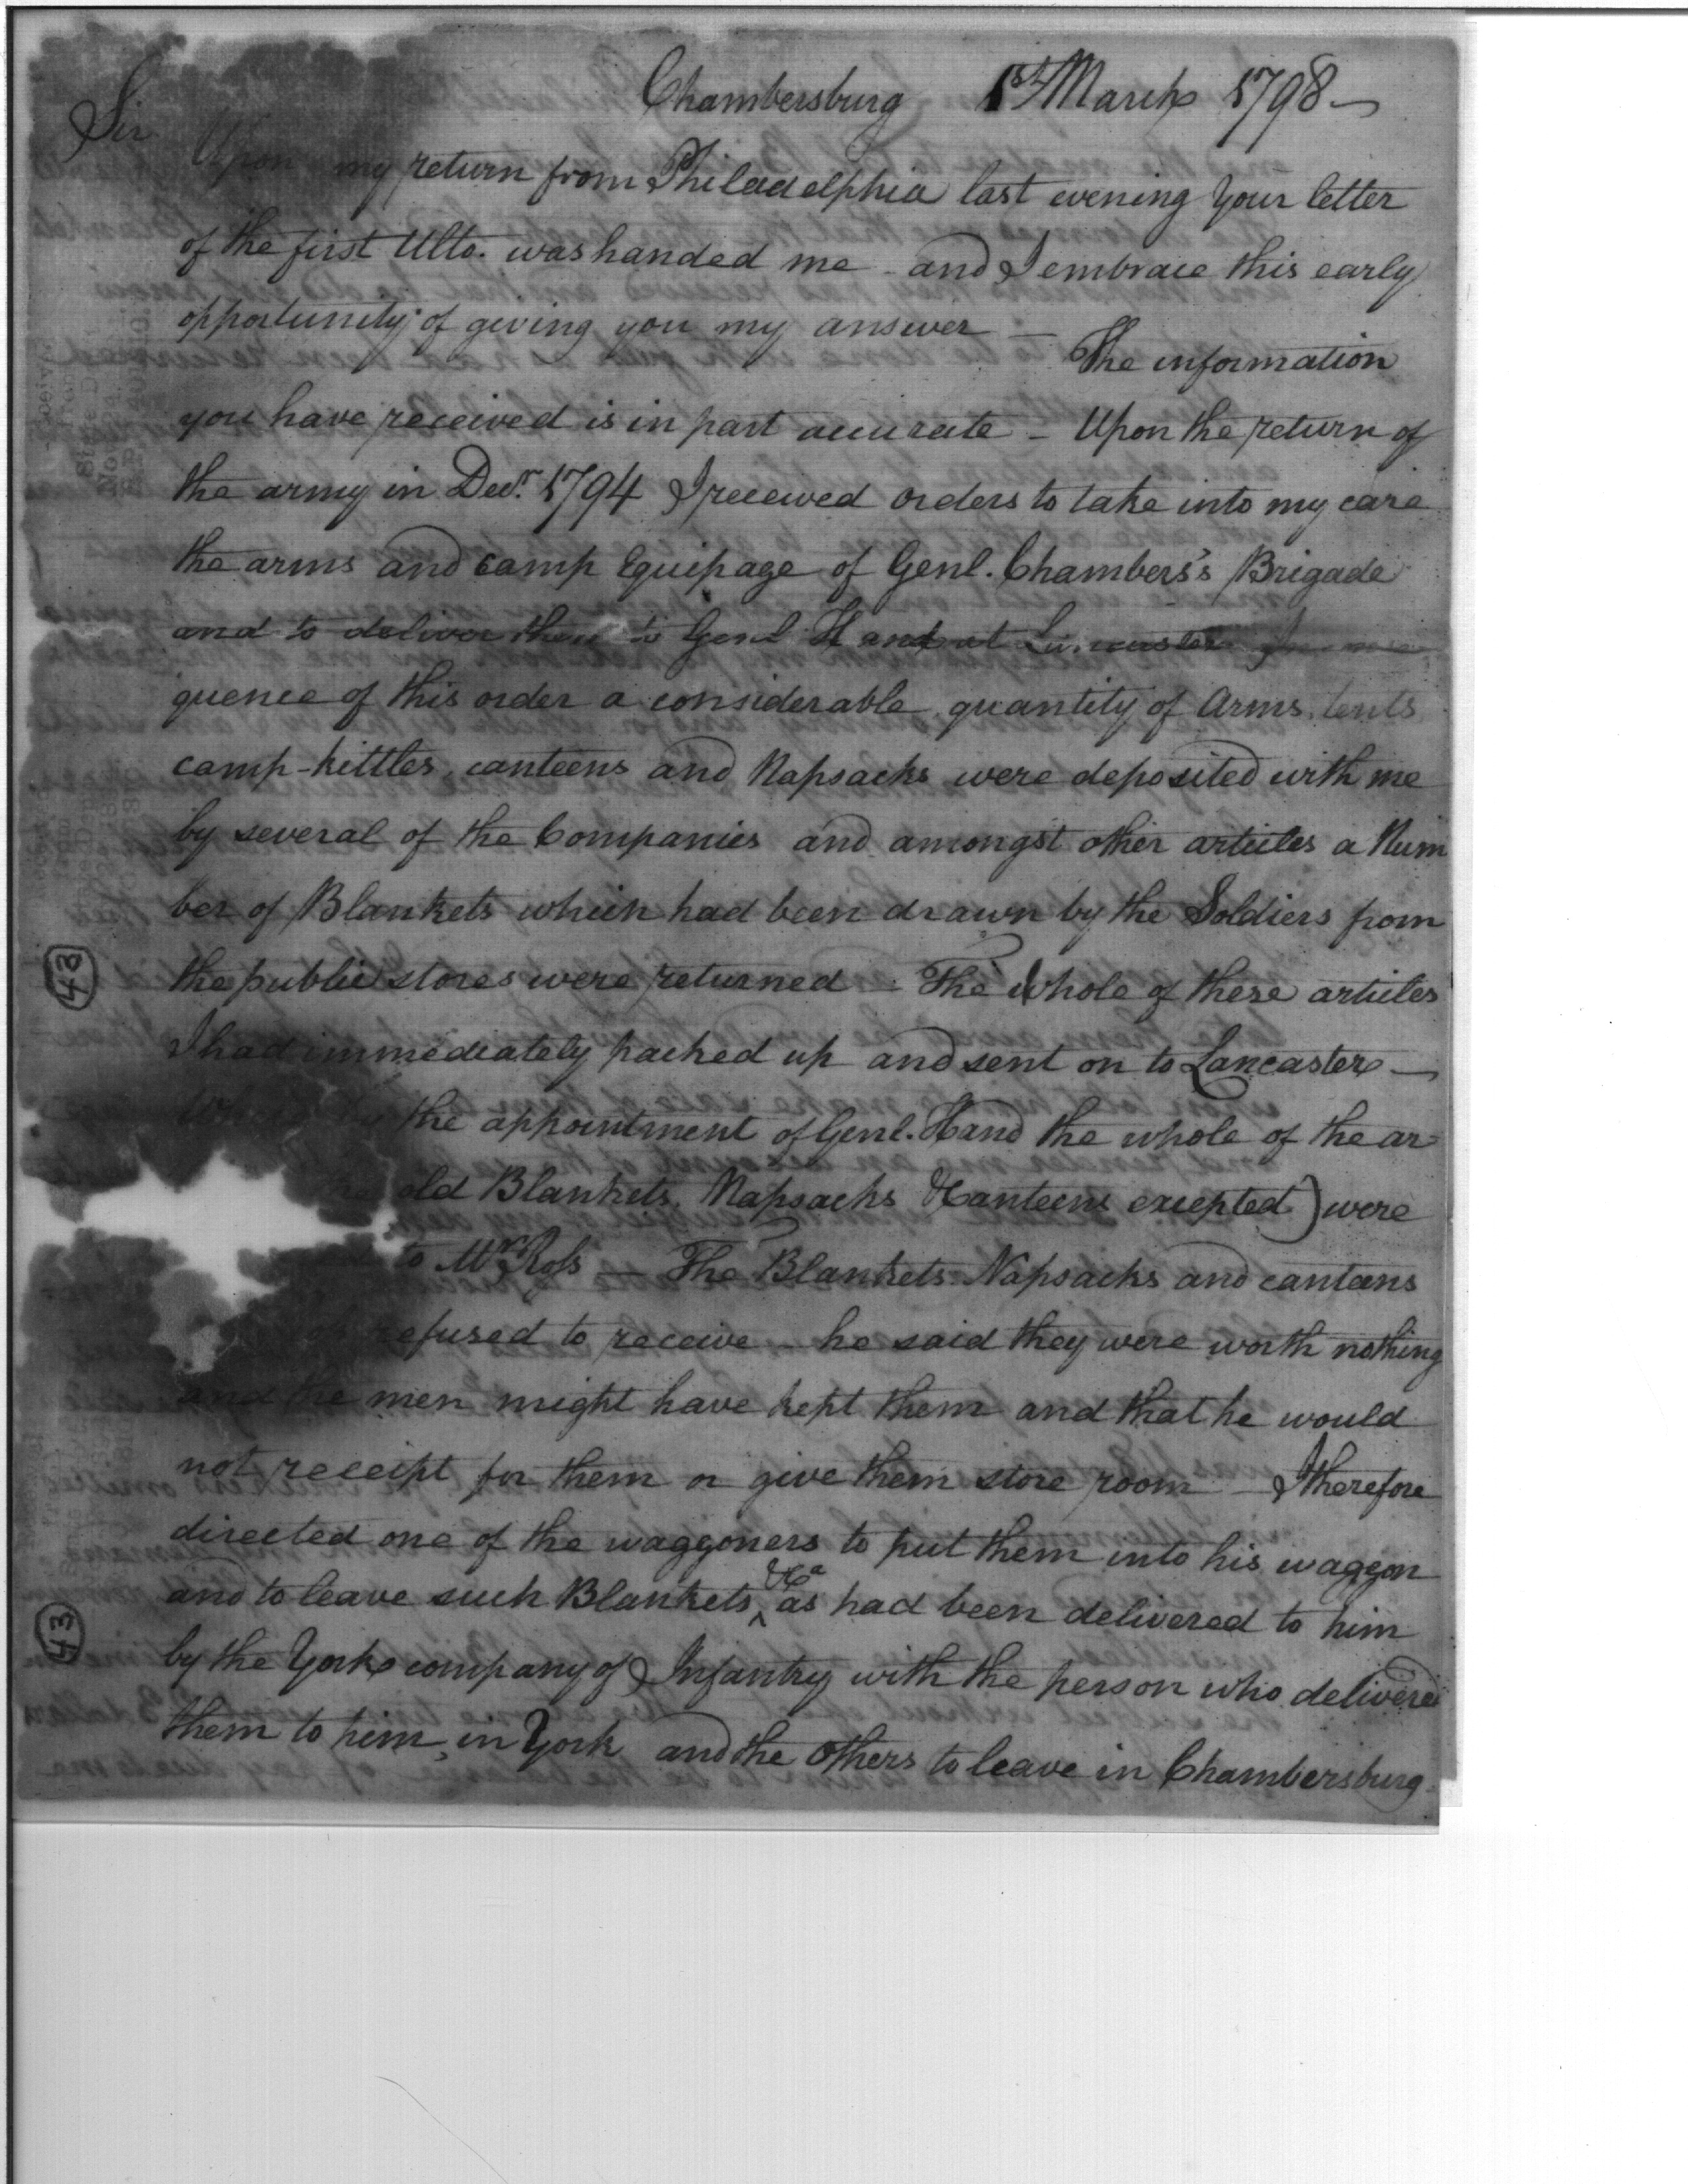 Chambersburg 1st March 1798 —
Sir
Upon my return from Philadelphia last evening your letter
of the first Ulto. was handed me - and I embrace this early
opportunity of giving you my answer —
The information
you have received is in part accurate - Upon the return of
the army in Decr. 1794 I received orders to take into my care
the arms and camp Equipage of Genl. Chambers's Brigade
and to deliver them to Genl Hand at Lancaster In conse
quence of this order a considerable quantity of Arms, tents
camp-kittles, canteens and Napsacks were deposited with me
by several of the Companies and amongst other articles a Num
ber of Blankets which had been drawn by the Soldiers from
the public stores were returned - The whole of these articles
I had immediately packed up and sent on to Lancaster —
the appointment of Genl. Hand the whole of the ar
the old Blankets, Napsacks & Canteens excepted) were
to Mr. Ross — The Blankets Napsacks and canteens
refused to receive - he said they were worth nothing
and the men might have kept them and that he would
not receipt for them or give them store room - I therefore
directed one of the waggoners to put them into his waggon
and to leave such Blankets &Ca as had been delivered to him
by the York company of Infantry with the person who delivered
them to him, in York and the others to leave in Chambersburg
43
43